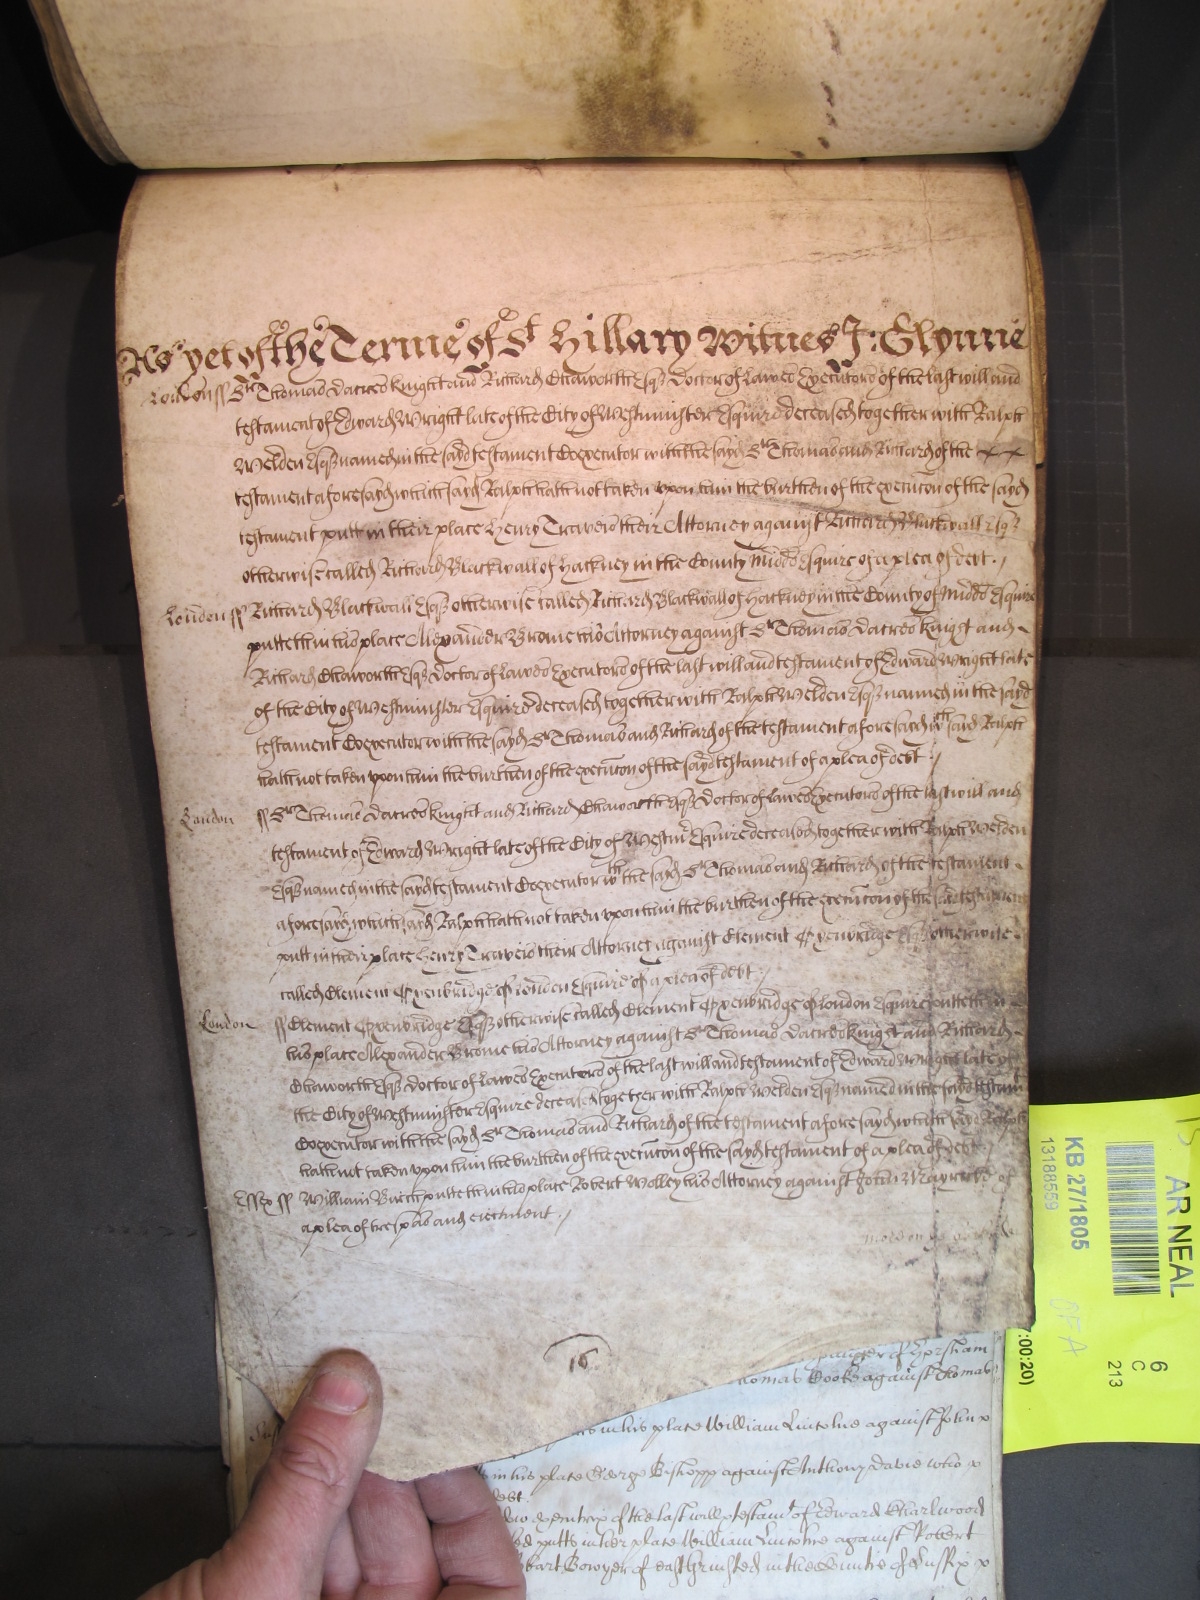 As yet of the Terme of St Hillary Witnes J: Glynne
London ss Sr Thomas Dacres knight and Richard Chaworth Esqr Doctor of Lawes Executors of the last will and
testament of Edward Wright late of the City of Westminster Esquire deceased together with Ralph
Welden Esqr named in the sayd testament Coexecutor with the sayd Sr Thomas and Richard of the
testament aforesayd which sayd Ralph hath not taken upon him the burthen of the execucon of the sayd
testament putt in their place Henry Travers their Attorney against Richard Blackwall Esqr
otherwise called Richard Blackwall of Hackney in the County Midds Esquire of a plea of debt.
London ss Richard Blackwall Esqr otherwise called Richard Blackwall of Hackney in the County of Midds Esquire
putteth in his place Alexander Brome his Attorney against Sr Thomas Dacres knight and
Richard Chaworth Esqr Doctor of Lawes Executors of the last will and testament of Edward Wright late
of the City of Westminster Esquire deceased together with Ralph Welden Esqr named in the sayd
testament Coexecutor with the sayd Sr Thomas and Richard of the testament aforesayd wch sayd Ralph
hath not taken upon him the burthen of the execucon of the sayd testament of a plea of debt
London ss Sr Thomas Dacres knight and Richard Chaworth Esqr Doctor of Lawes Executors of the last will and
testament of Edward Wright late of the City of Westmr Esquire deceased together with Ralph Welden
Esqr named in the sayd testament Coexecutor wth the sayd Sr Thomas and Richard of the testament
aforesayd which sayd Ralph hath not taken upon him the burthen of the execucon of the sayd testament
putt in their place Henry Travers their Attorney against Clement Oxenbridge Esqr otherwise
called Clement Oxenbridge of London Esquire of a plea of debt
London ss Clement Oxenbridge Esqr otherwise called Clement Oxenbridge of London Esquire putteth in
his place Alexander Brome his Attorney against Sr Thomas Dacres knight and Richard
Chaworth Esqr Doctor of Lawes Executors of the last will and testament of Edward Wright late of
the City of Westminster Esquire deceased together with Ralph Welden Esqr named in the sayd testam
Coexecutor with the sayd Sr Thomas and Richard of the testament aforesayd which sayd Ralph
hath not taken upon him the burthen of the execucon of the sayd testament of a plea of debt
Essex ss William Burch putteth in his place Robert Wolley his Attorney against John of
a plea of trespas and eiectment
more on
16
of Horsham
Thomas Cooke against Thomas
in his place William Lintolne against John x
in his place George Bishopp against Anthony Davie who x
debt
executrix of the last will & testamt of Edward Charlwood
putts in her place William Lintolne against Robert
Bowyer of East Grinsted in the Countie of Sussex x
AR NEAL
KB 27/1805
13188559
6
C
213
OF A
7:00:20)
15